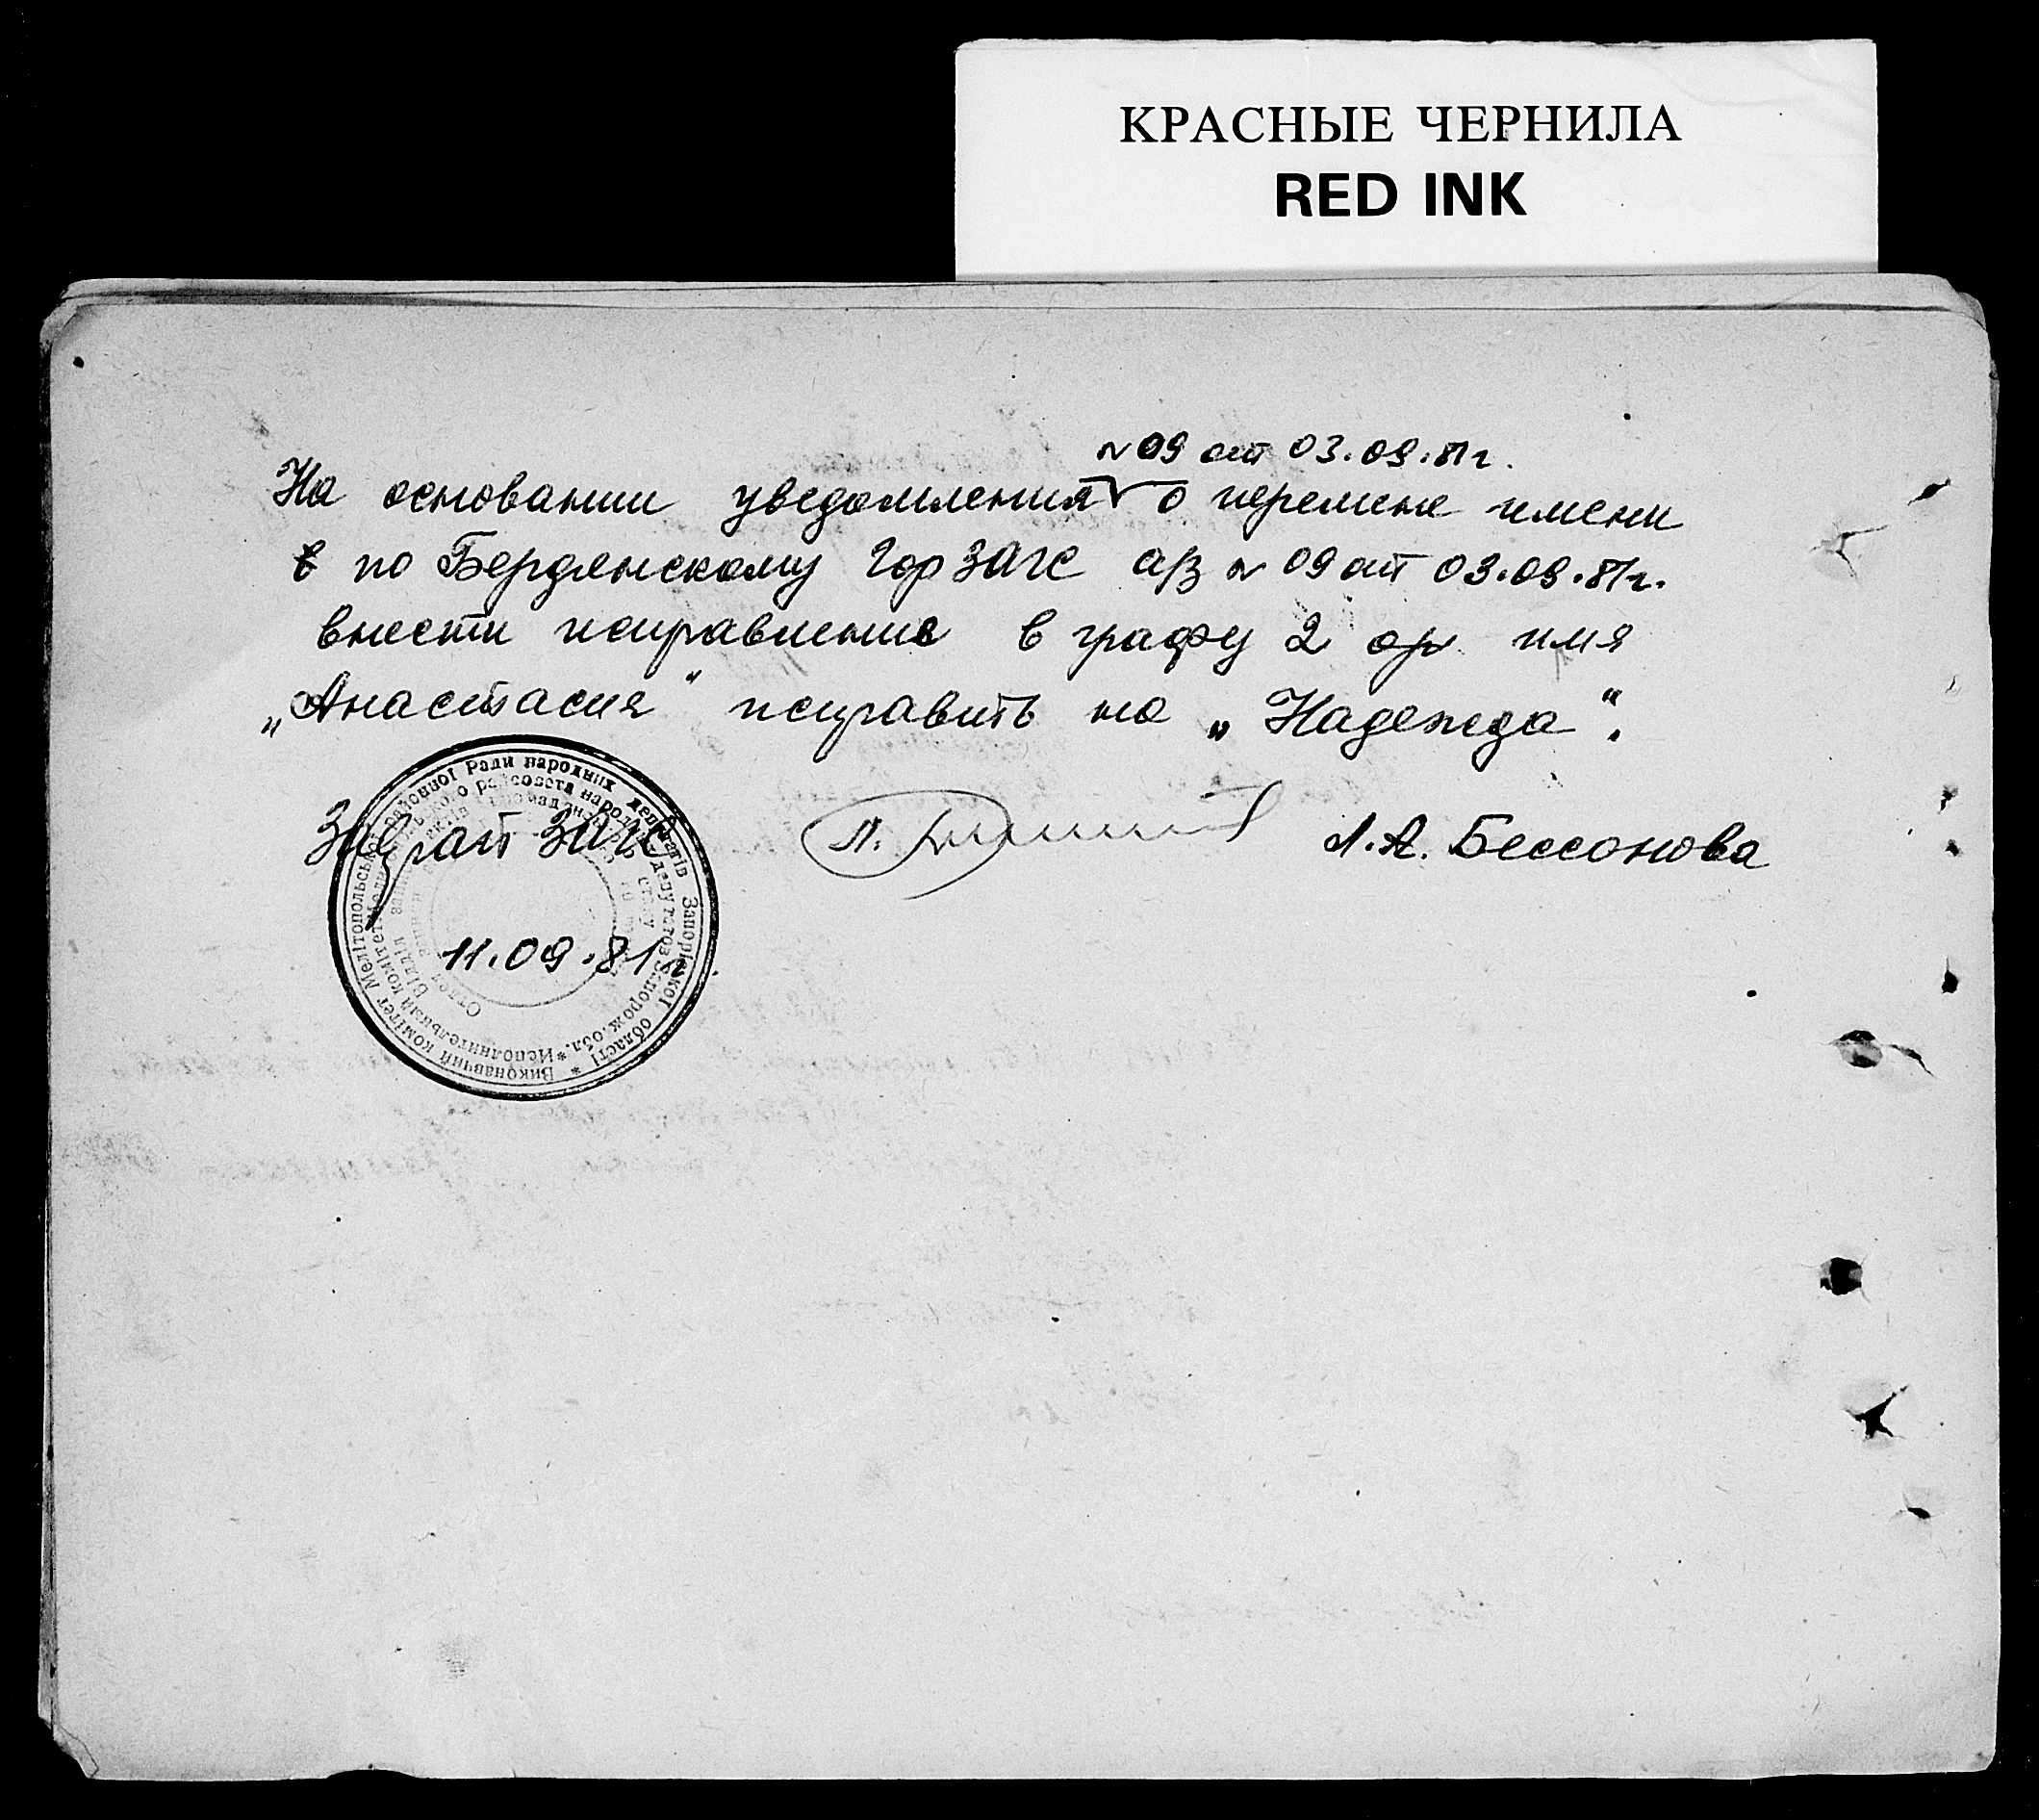 КРАСНЫЕ ЧЕРНИЛА
RED INK
№ 09 от 03.09.81г.
На основании уведомления о перемене имени
в по Бердянскому ГорЗАГС а/з № 09 от 03.09.81г.
внести исправление в графу 2 имя
„Анастасия" исправить на „Надежда".
Зав. ЗАГС Л. А. Бессонова
11.09.81г.
* Виконавчий комітет Мелітопольської районної Ради народних депутатів Запорізької області
* Исполнительный комитет райсовета народных депутатов Запорож. обл.